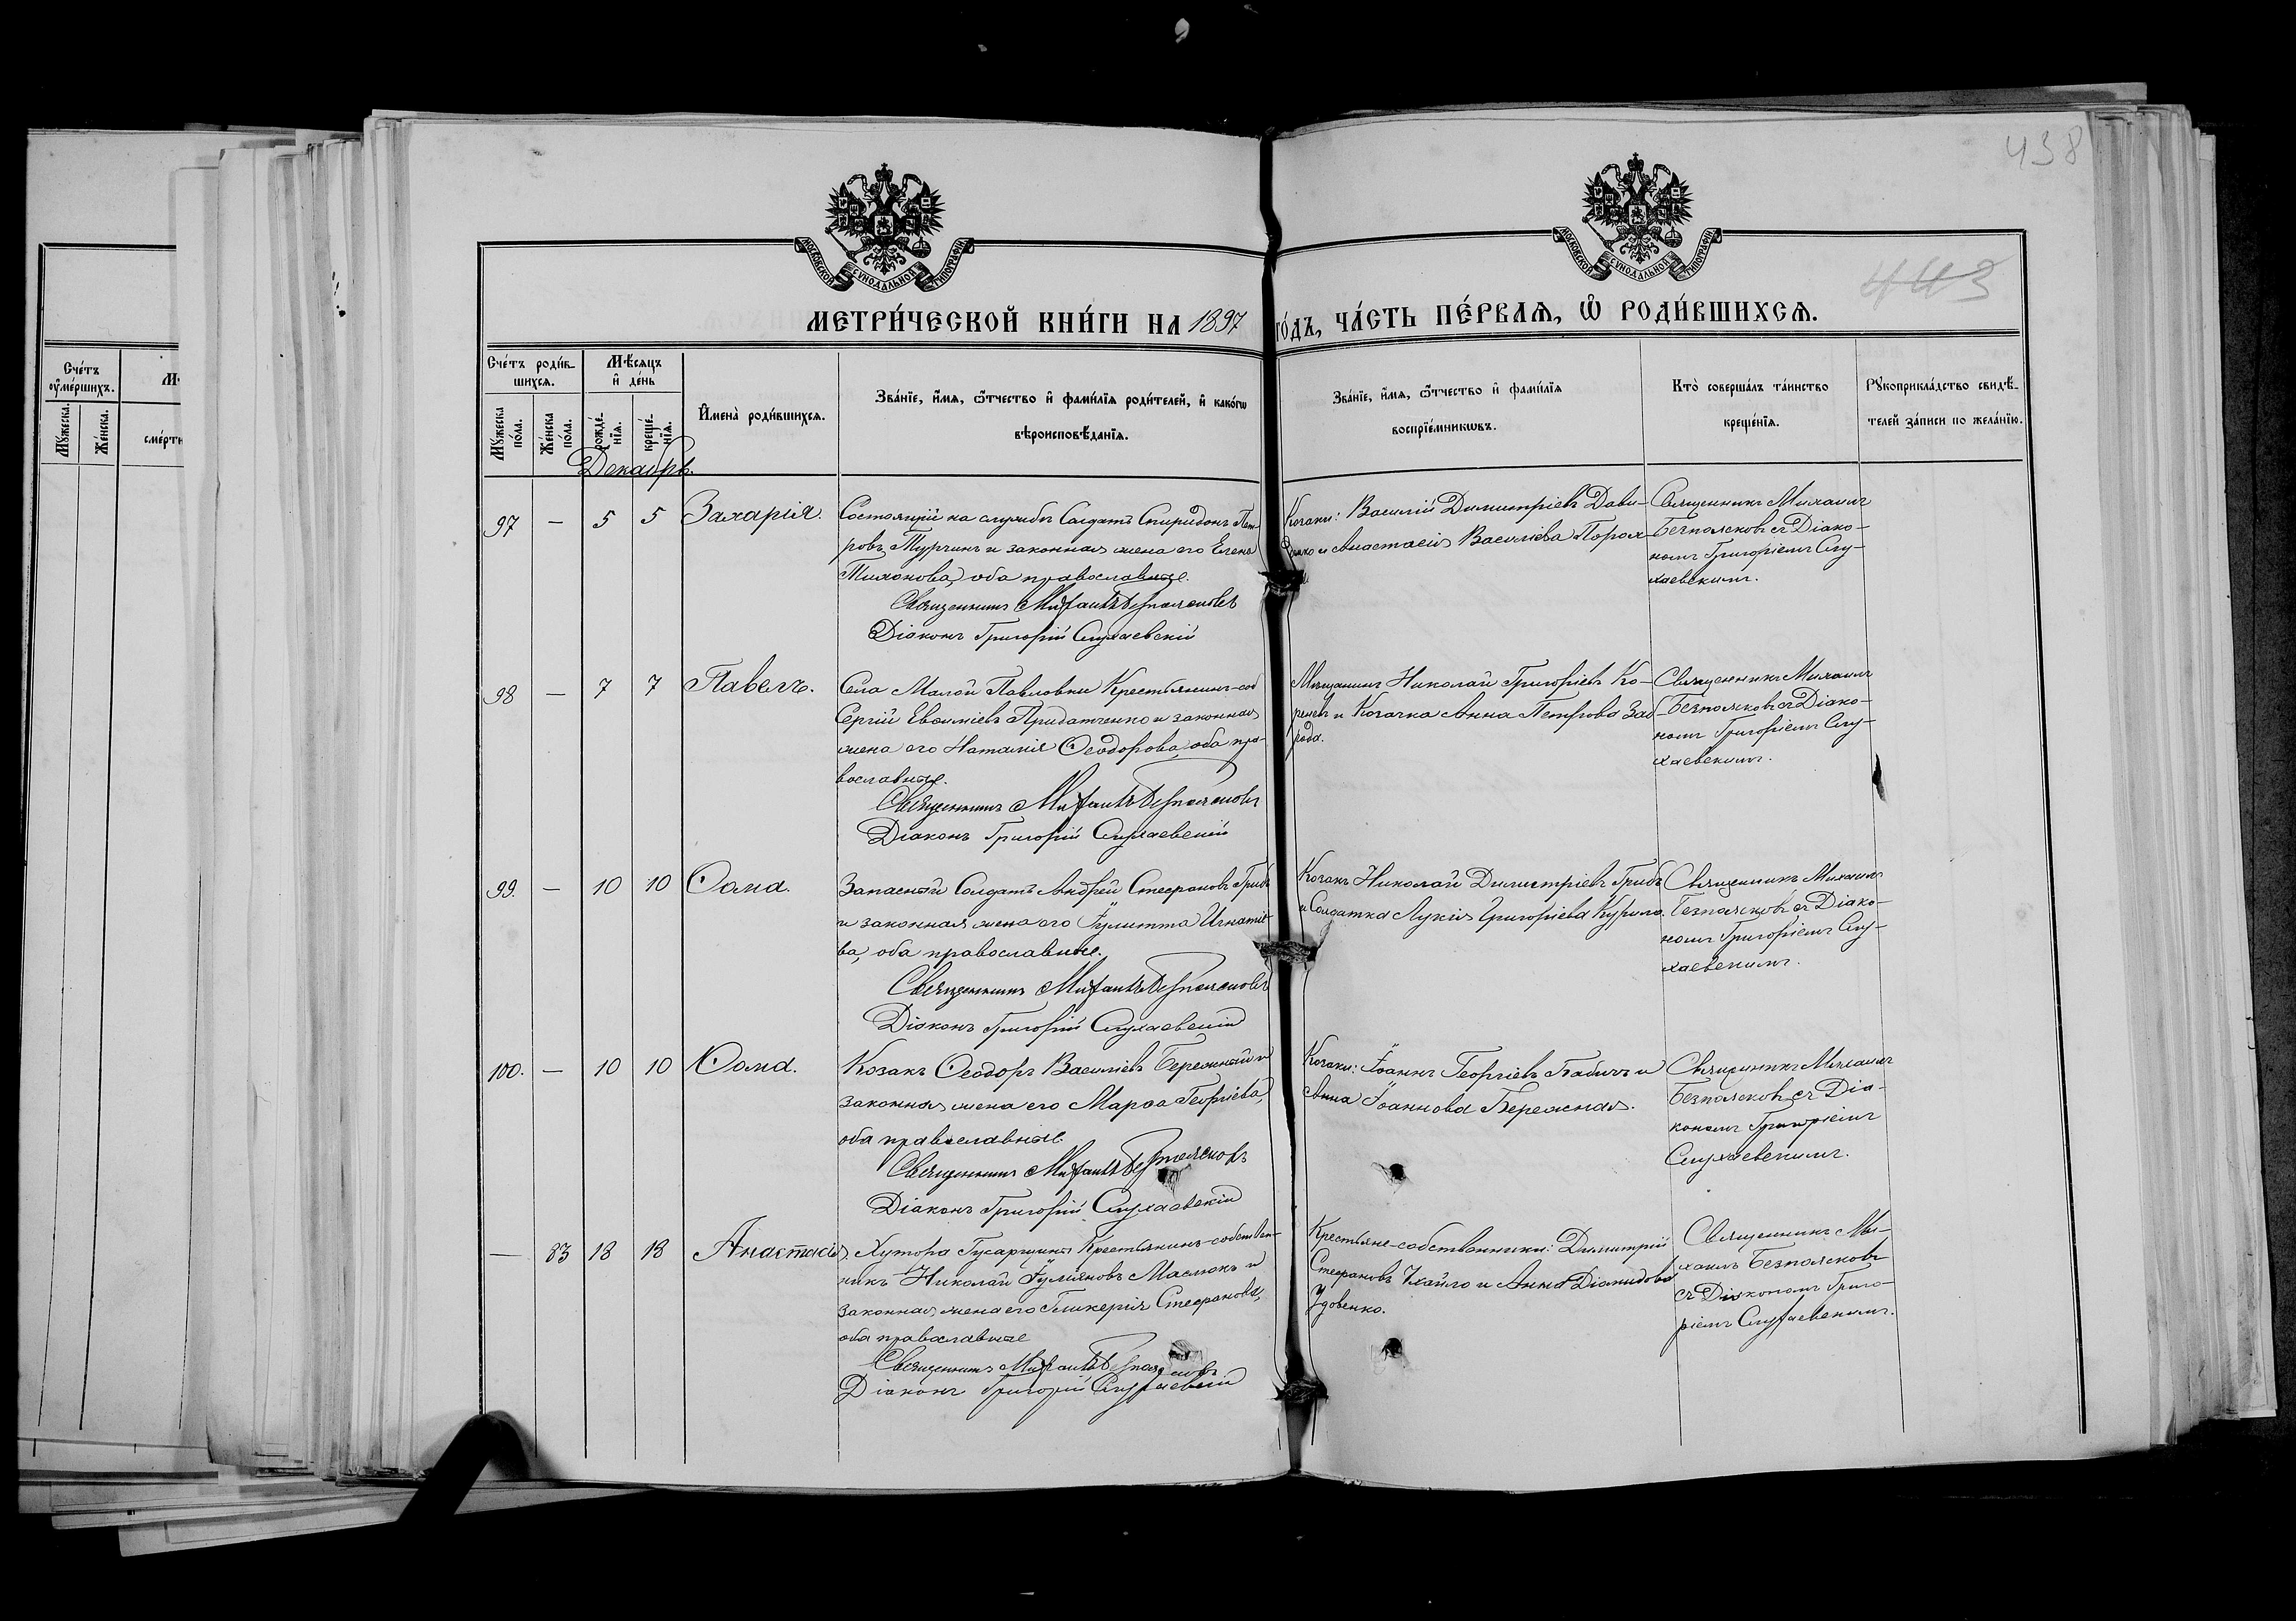 438
443
МОСКОВСКОЙ СУНОДАЛЬНОЙ ТИПОГРАФІИ
МОСКОВСКОЙ СУНОДАЛЬНОЙ ТИПОГРАФІИ
МЕТРИ́ЧЕСКОЙ КНИ́ГИ НА 1897 ГО́ДЪ, ЧА́СТЬ ПЕ́РВАѦ, Ѡ҆ РОДИ́ВШИХСѦ.
Сче́тъ оу҆ме́ршихъ.
Мꙋ́жеска.
Же́нска.
М
сме́рти
Сче́тъ роди́в-
шихсѧ.
Мꙋ́жеска по́ла.
Же́нска по́ла.
Мѣ́сѧцъ
и҆ де́нь
рожде́-
нїѧ.
креще́-
нїѧ.
И҆мена̀ роди́вшихсѧ.
Зва́нїе, и҆́мѧ, ѻ҆́тчество и҆ фами́лїѧ роди́телей, и҆ како́гѡ
вѣроисповѣ́данїѧ.
Зва́нїе, и҆́мѧ, ѻ҆́тчество и҆ фами́лїѧ
воспрїе́мникѡвъ.
Кто̀ соверша́лъ та́инство
креще́нїѧ.
Рꙋкоприкла́дство свидѣ́-
телей за́писи по жела́нїю.
Декабрь.
97 — 5 5 Захарія.
Состоящій на службѣ Солдатъ Спиридонъ Пет-
ровъ Турчинъ и законная жена его Елена
Тихонова, оба православные.
Священникъ Михаилъ Безпоясковъ
Діаконъ Григорій Слухаевскій
Козаки: Василій Димитріевъ Дави-
денко и Анастасія Василіева Порох
Священникъ Михаилъ
Безпоясковъ съ Діако-
номъ Григоріемъ Слу-
хаевскимъ.
98 — 7 7 Павелъ.
Села Малой Павловки Крестьянинъ-соб
Сергій Евѳиміевъ Придатченко и законная
жена его Наталія Ѳеодорова, оба пра-
вославные.
Священникъ Михаилъ Безпоясковъ
Діаконъ Григорій Слухаевскій
Мѣщанинъ Николай Григоріевъ Ко-
реневъ и Козачка Анна Петрова Заб-
рода.
Священникъ Михаилъ
Безпоясковъ съ Діако-
номъ Григоріемъ Слу-
хаевскимъ.
99. — 10 10 Ѳома.
Запасный Солдатъ Андрей Стефановъ Грибъ
и законная жена его Іулитта Игнатіе-
ва, оба православные.
Священникъ Михаилъ Безпоясковъ
Діаконъ Григорій Слухаевскій
Козакъ Николай Димитріевъ Грибъ
и Солдатка Лукія Григоріева Курило.
Священникъ Михаилъ
Безпоясковъ съ Діако-
номъ Григоріемъ Слу-
хаевскимъ.
100. — 10 10 Ѳома.
Козакъ Ѳеодоръ Василіевъ Бережный и
законная жена его Марѳа Георгіева,
оба православные.
Священникъ Михаилъ Безпоясковъ
Діаконъ Григорій Слухаевскій
Козаки: Іоаннъ Георгіевъ Бабичъ и
Анна Іоаннова Бережная.
Священникъ Михаилъ
Безпоясковъ съ Діа-
кономъ Григоріемъ
Слухаевскимъ.
— 83 18 18 Анастасія
Хутора Гусарщины Крестьянинъ-собствен-
никъ Николай Іуліановъ Маслюкъ и
законная жена его Гликерія Стефанова,
оба православные
Священникъ Михаилъ Безпоясковъ
Діаконъ Григорій Слухаевскій
Крестьяне-собственники: Димитрій
Стефановъ Ухайло и Анна Діомидова
Удовенко.
Священникъ Ми-
хаилъ Безпоясковъ
съ Діакономъ Григо-
ріемъ Слухаевскимъ.